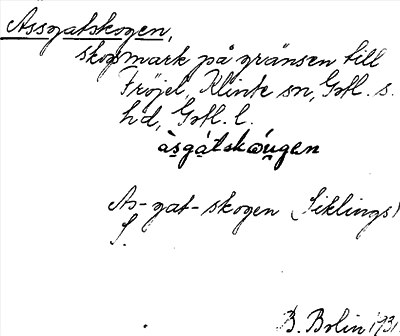 Assgatskogen,
skogsmark på gränsen till
Fröjel, Klinte sn, Gotl. s.
hd, Gotl. l.
àsgátskóu̯gen
As-gat-skogen (Siklings)
S.
B. Bolin 1931